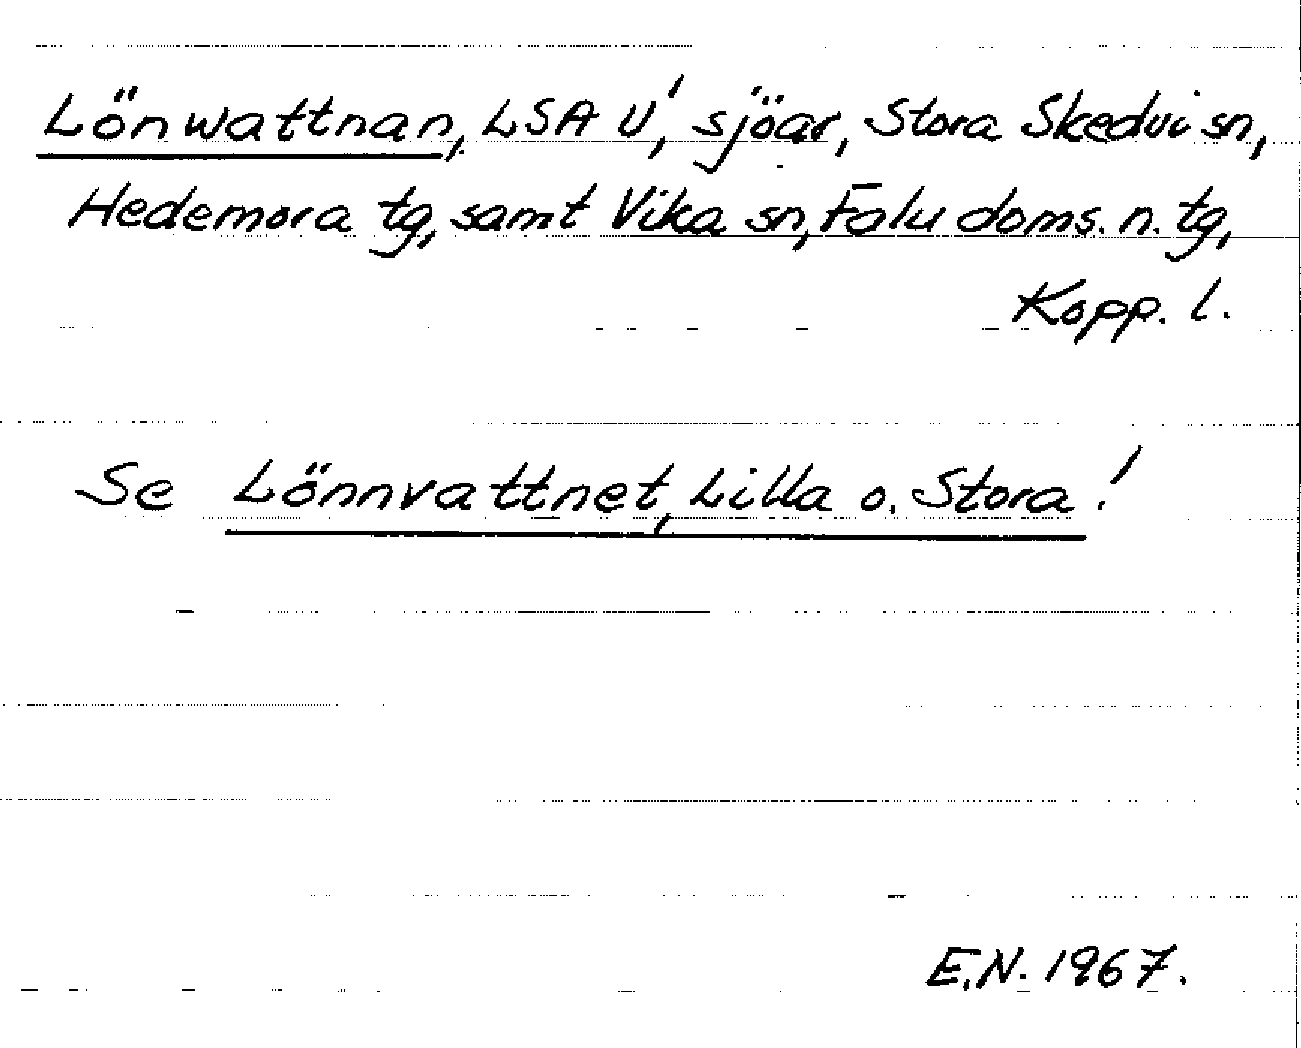 Lönwattnan, LSA U', sjöar, Stora Skedvi sn,
Hedemora tg, samt Vika sn, Falu doms. n. tg,
Kopp. l.
Se Lönnvattnet, Lilla o. Stora!
E.N. 1967.